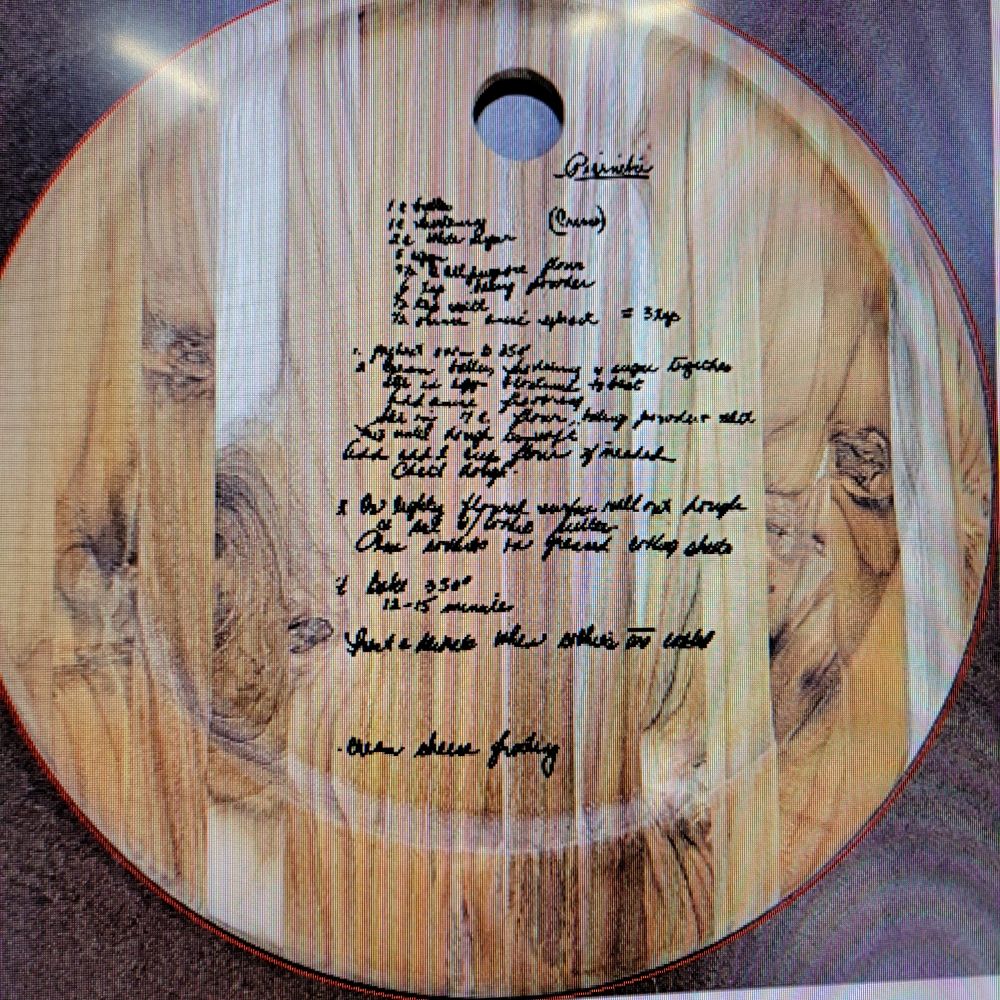 1 c butter
1 c shortening (Crisco)
2 c white sugar
5 eggs
all purpose flour
tsp baking powder
½ tsp salt
½ ounce anise extract = 3 tsp
1. preheat oven to 350°
2 Cream butter, shortening & sugar together
eggs to beat
Add anise flavoring
Mix in 7 c flour, baking powder & salt
Mix until dough
Add add'l cup flour if needed
Chill dough
3 On lightly floured surface roll out dough
& cut w/ cookie cutter
cookies on greased cookie sheets
4 bake 350°
12-15 minutes
Frost & when cookies are cooled
cream cheese frosting